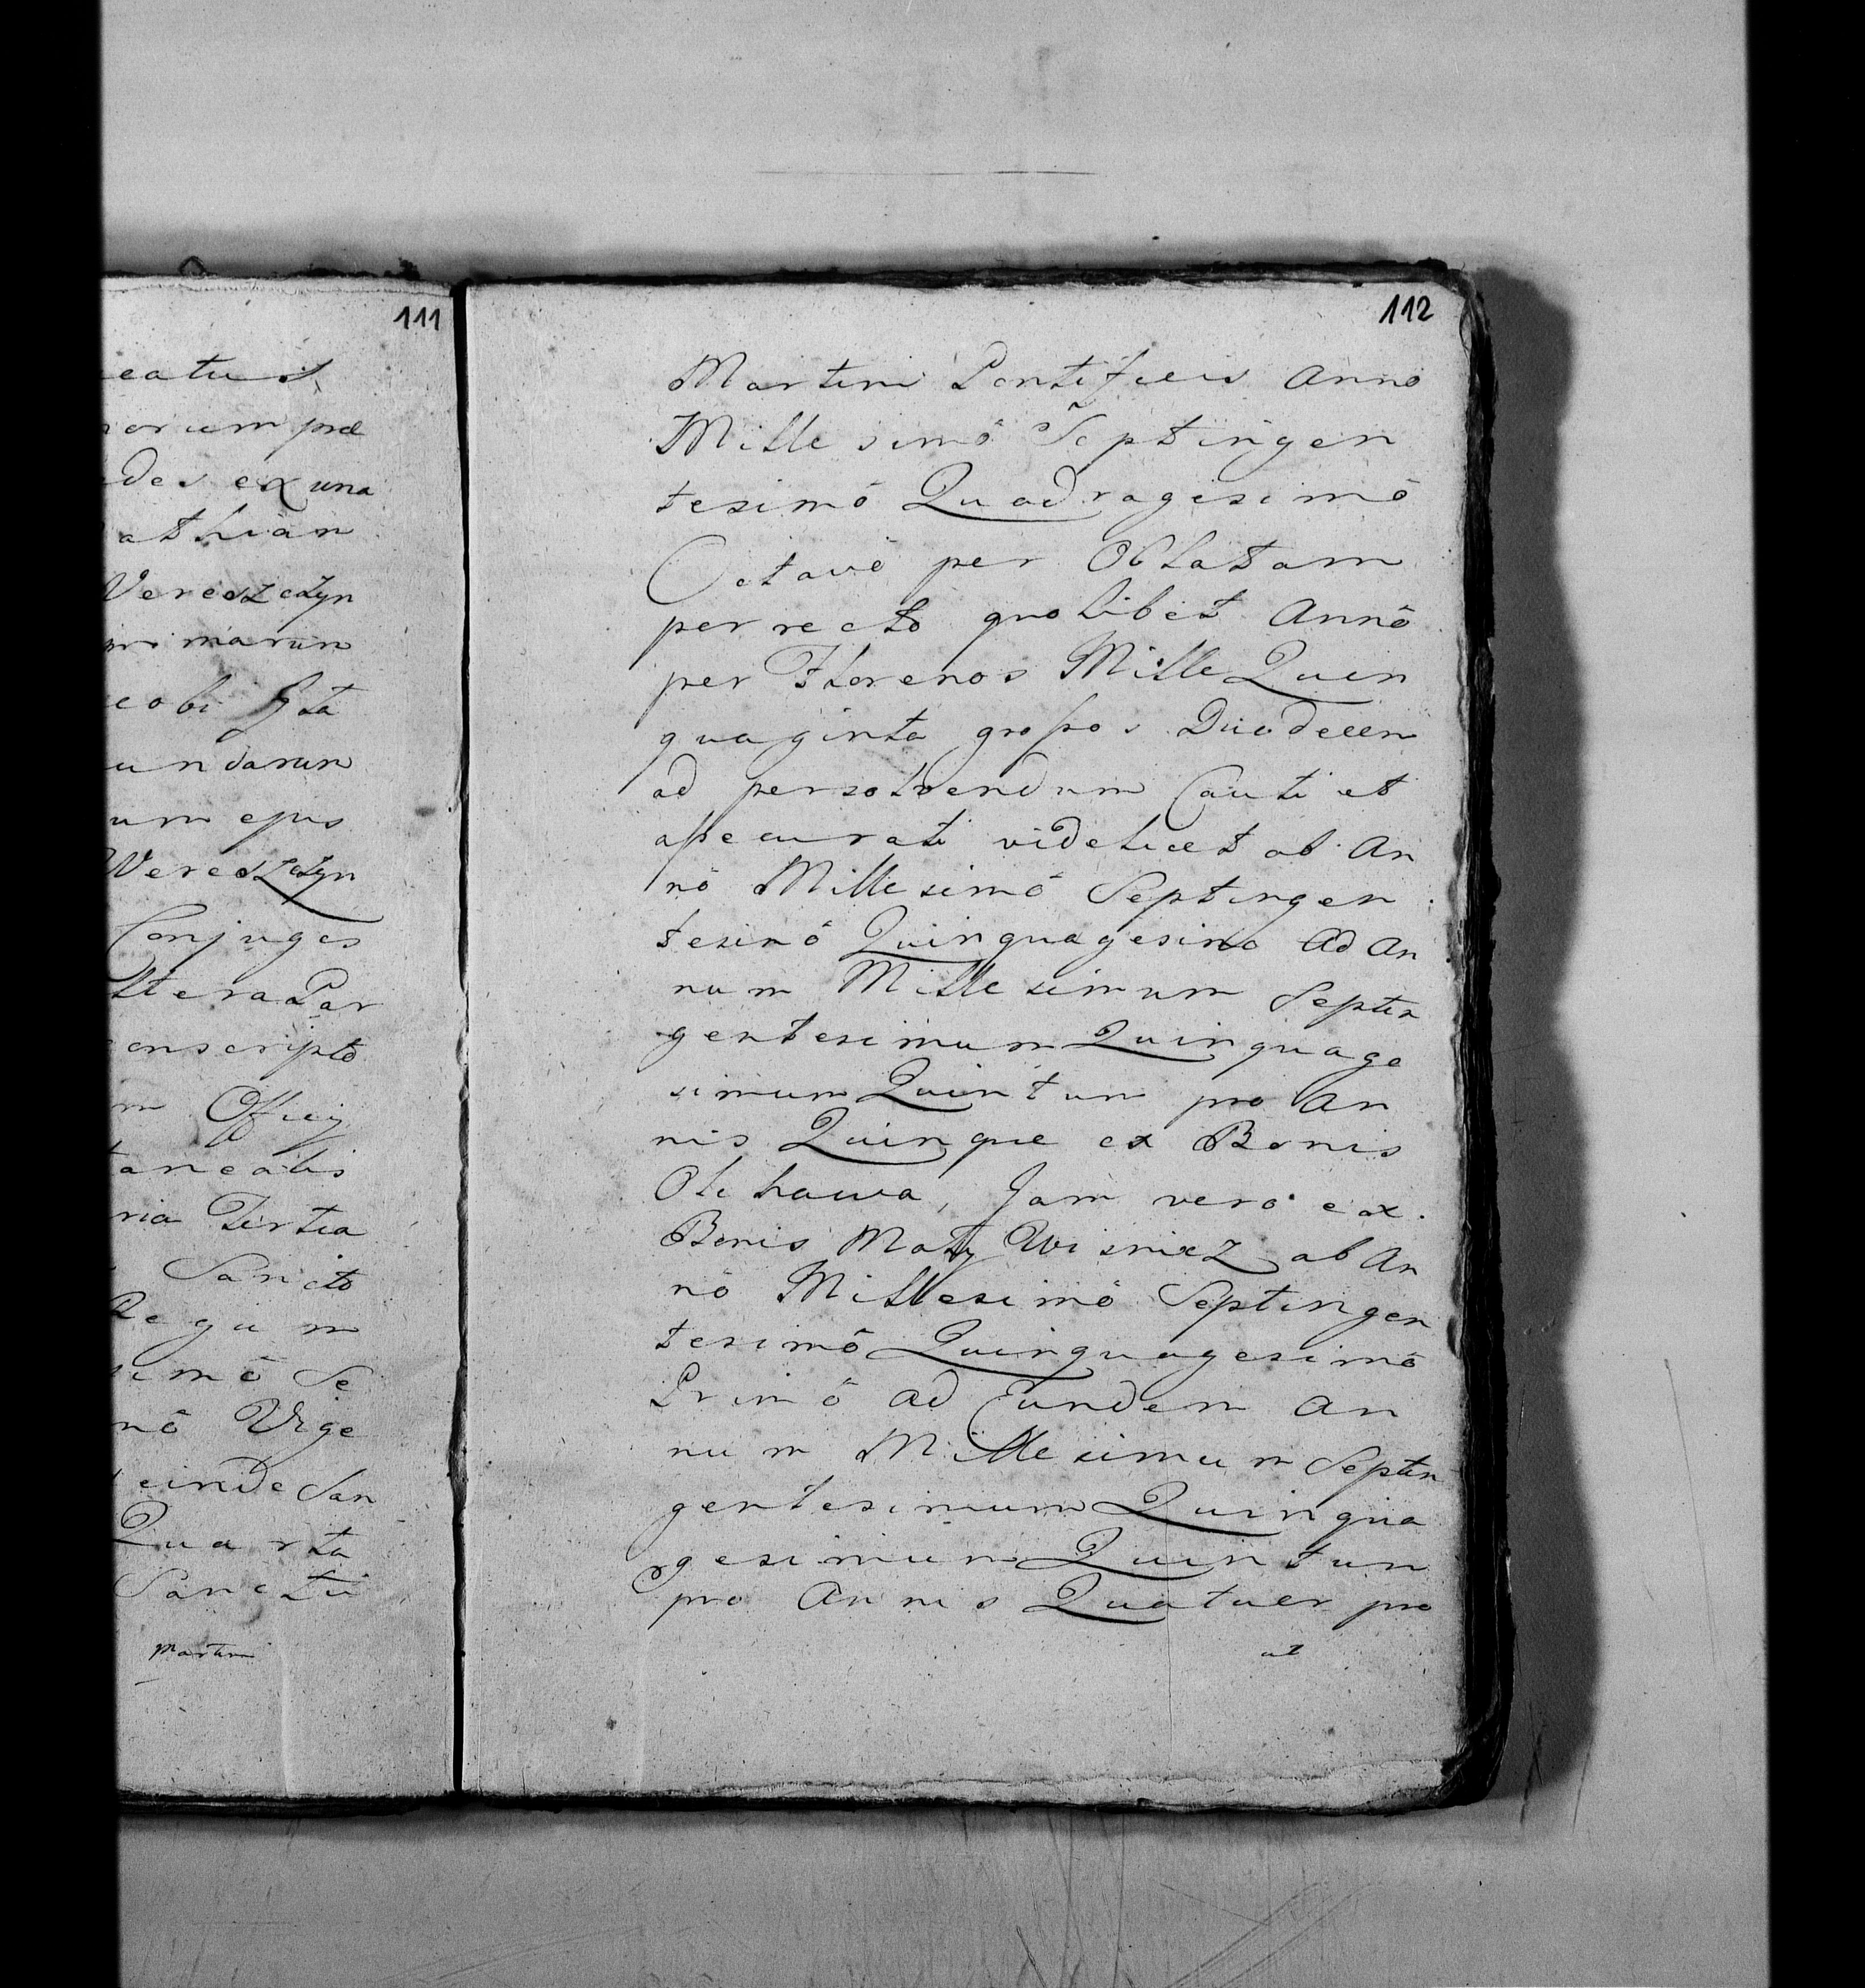 111
eatus
orum præ
edes ex una
athian
Vereszczyn
imarum
cobi Gta
undarum
um ejus
Wereszczyn
Conjuges
ltera Par
onscripto
m Officij
anealis
ria Tertia
Sancto
Regum
simô Se
nô Vige
einde San
Quarta
Sancti
Martini
112
Martini Pontificis Annô
Millesimô Septingen
tesimô Quadragesimô
Octavô per Oblatam
perrectô quolibet Annô
per Florenos Mille Quin
quaginta grossos Duodecem
ad persolvendum Cauti et
assecurati videlicet ab An
nô Millesimô Septingen
tesimô Quinquagesimo Ad An
num Millesimum Septin
gentesimum Quinquage
simum Quintum pro An
nis Quinque ex Bonis
Olchawa, Jam verô ex
Bonis Maly Wisnicz ab An
nô Millesimô Septingen
tesimô Quinquagesimô
Primô ad Eundem An
num Millesimum Septin
gentesimum Quinqua
gesimum Quintum
pro Annis Quatuor pro
ut